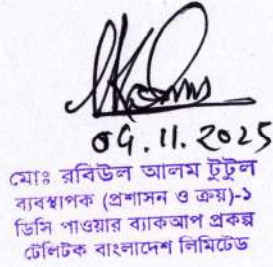 09.11.2025
মোঃ রবিউল আলম টুটুল
ব্যবস্থাপক (প্রশাসন ও ক্রয়)-১
ডিসি পাওয়ার ব্যাকআপ প্রকল্প
টেলিটক বাংলাদেশ লিমিটেড